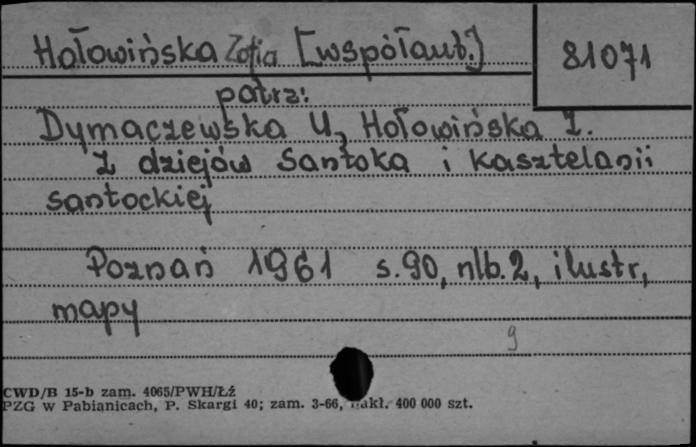 Hołowińska Zofia [współaut.]
81071
patrz:
Dymaczewska U, Hołowińska Z.
Z dziejów Santoka i kasztelanii
santockiej
Poznań 1961 s.90, nlb.2, ilustr,
mapy
9
CWD/B 15-b zam. 4065/PWH/Łź
PZG w Pabianicach, P. Skargi 40; zam. 3-66, nakł. 400 000 szt.